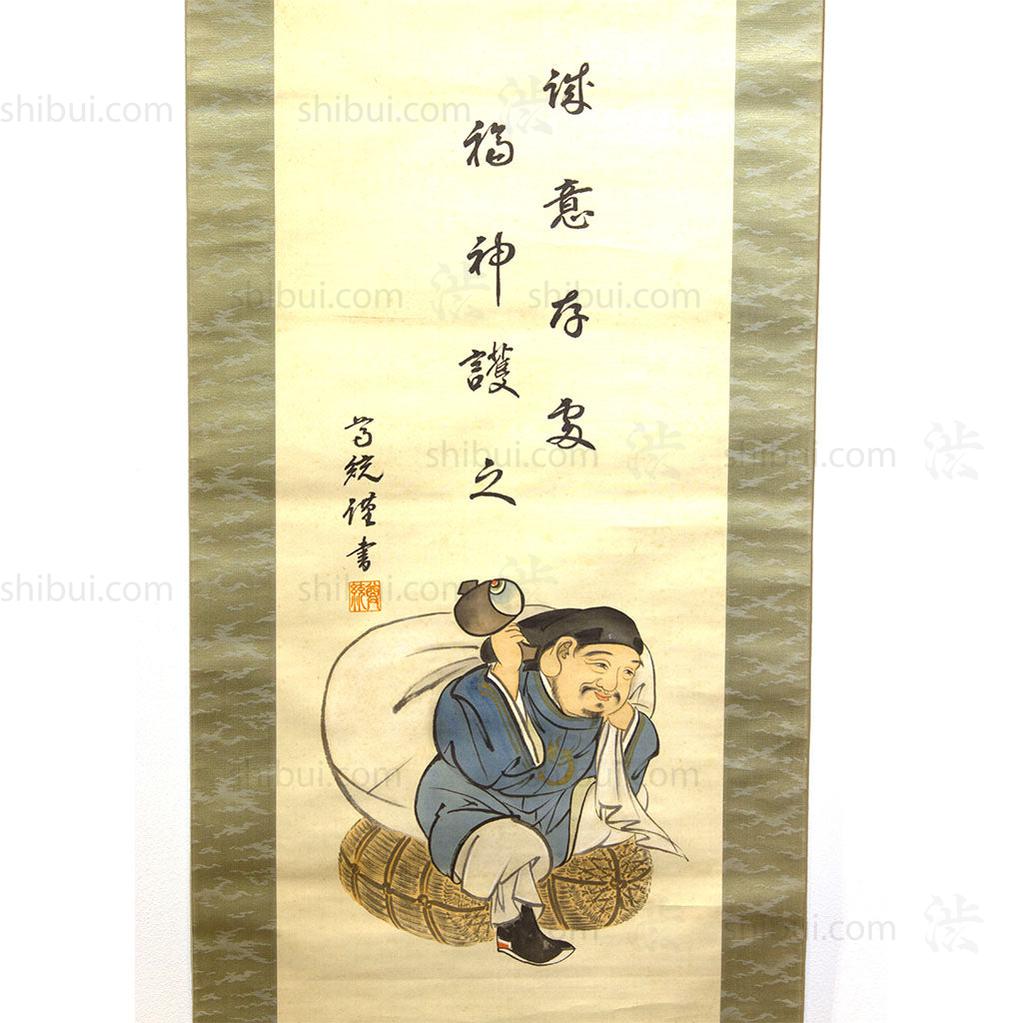 誠意存処
福神護之
尊統謹書
尊統
shibui.com
shibui.com
渋
shibui.com
shibui.com
渋
shibui.com
shibui.com
渋
shibui.com
渋
shibui.com
shibui.com
渋
shibui.com
shibui.com
shibui.com
渋
shibui.com
渋